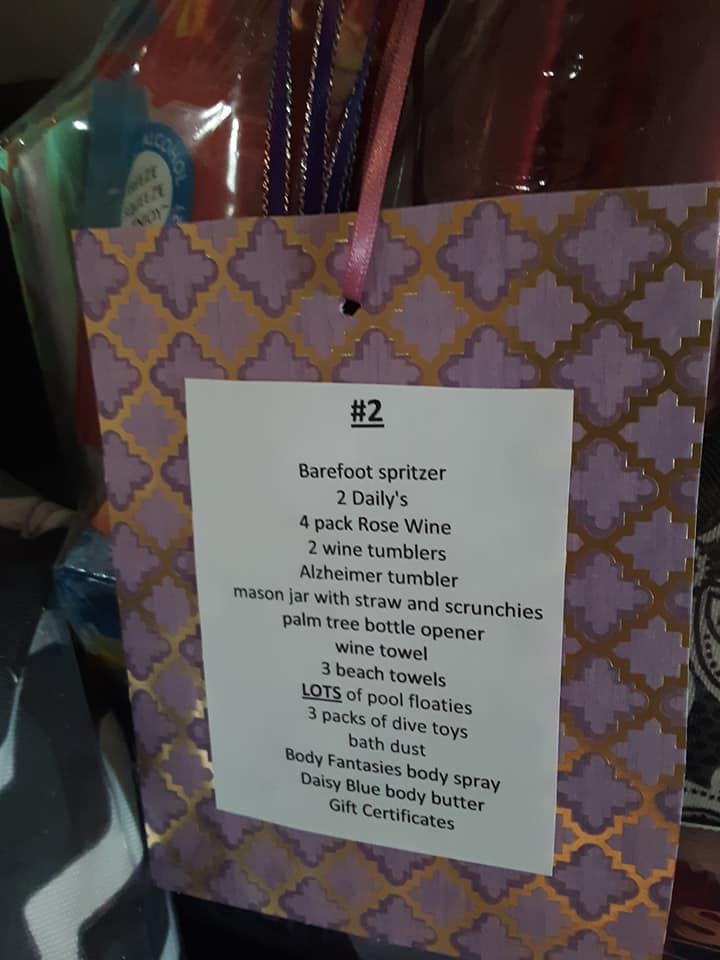 ALCOHOL
FREEZE
SQUEEZE
ENJOY
#2
Barefoot spritzer
2 Daily's
4 pack Rose Wine
2 wine tumblers
Alzheimer tumbler
mason jar with straw and scrunchies
palm tree bottle opener
wine towel
3 beach towels
LOTS of pool floaties
3 packs of dive toys
bath dust
Body Fantasies body spray
Daisy Blue body butter
Gift Certificates